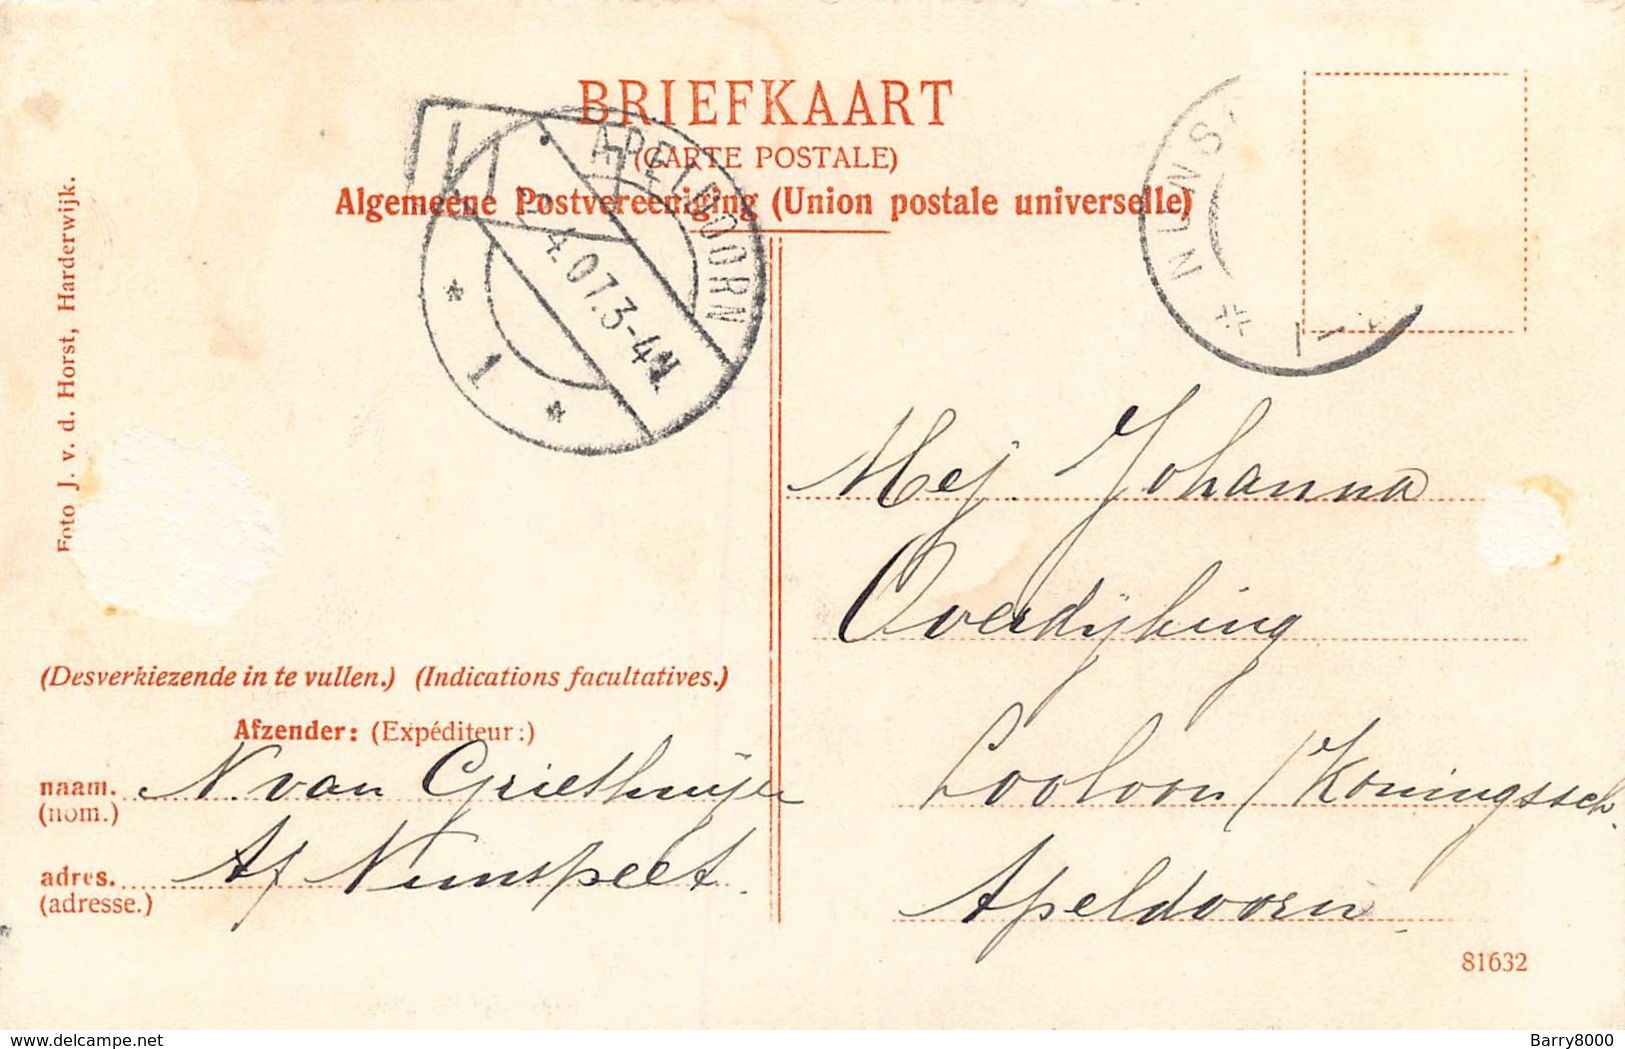 BRIEFKAART
(CARTE POSTALE)
Algemeene Postvereeniging (Union postale universelle)
APELDOORN
4.07.3-4N
* 1 *
* NUNS
Foto J. v. d. Horst, Harderwijk.
Mej. Johanna
Overdijking
Looloon / Koningssch.
Apeldoorn
(Desverkiezende in te vullen.) (Indications facultatives.)
Afzender: (Expéditeur:)
naam. N. van Griethuijsen
(nom.)
adres. Af Nunspeet.
(adresse.)
81632
delcampe.net
Barry8000